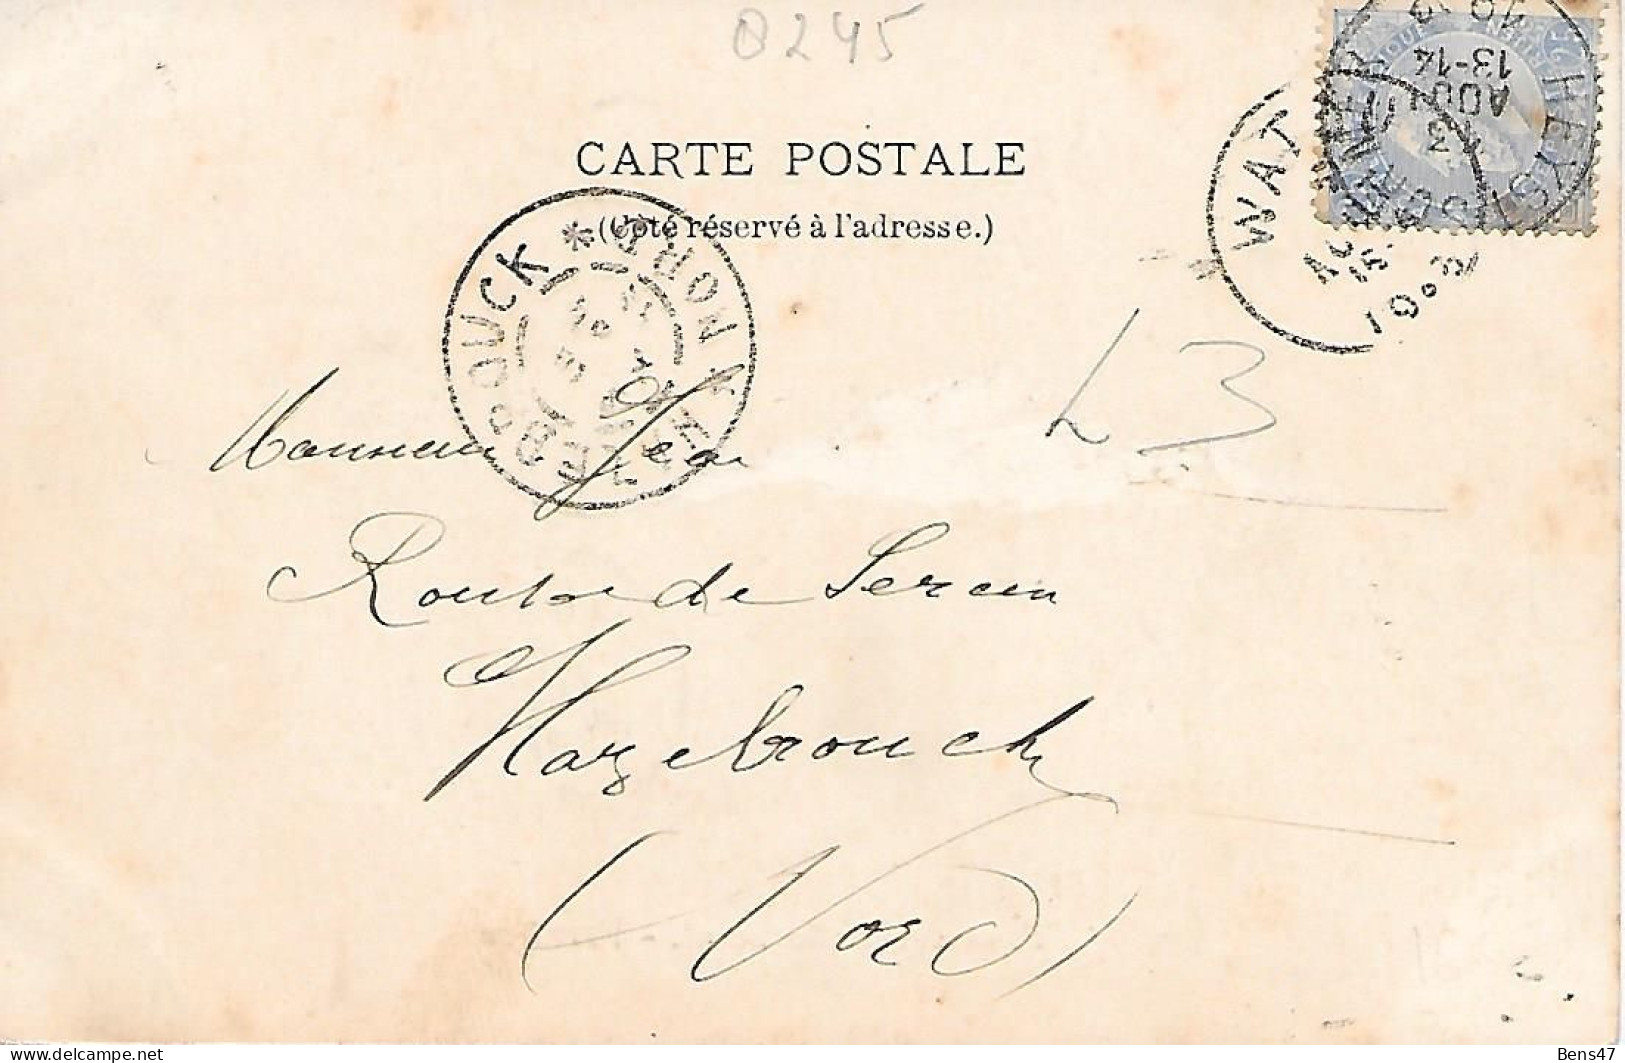 0245
CARTE POSTALE
(Côté réservé à l'adresse.)
HAZEBROUCK * NORD *
HEYST
10 13
13-14
AOUT
13
* WAT
1903
L 3
Monsieur Jean
Route de Sercus
Hazebrouck
(Nord)
Bens47